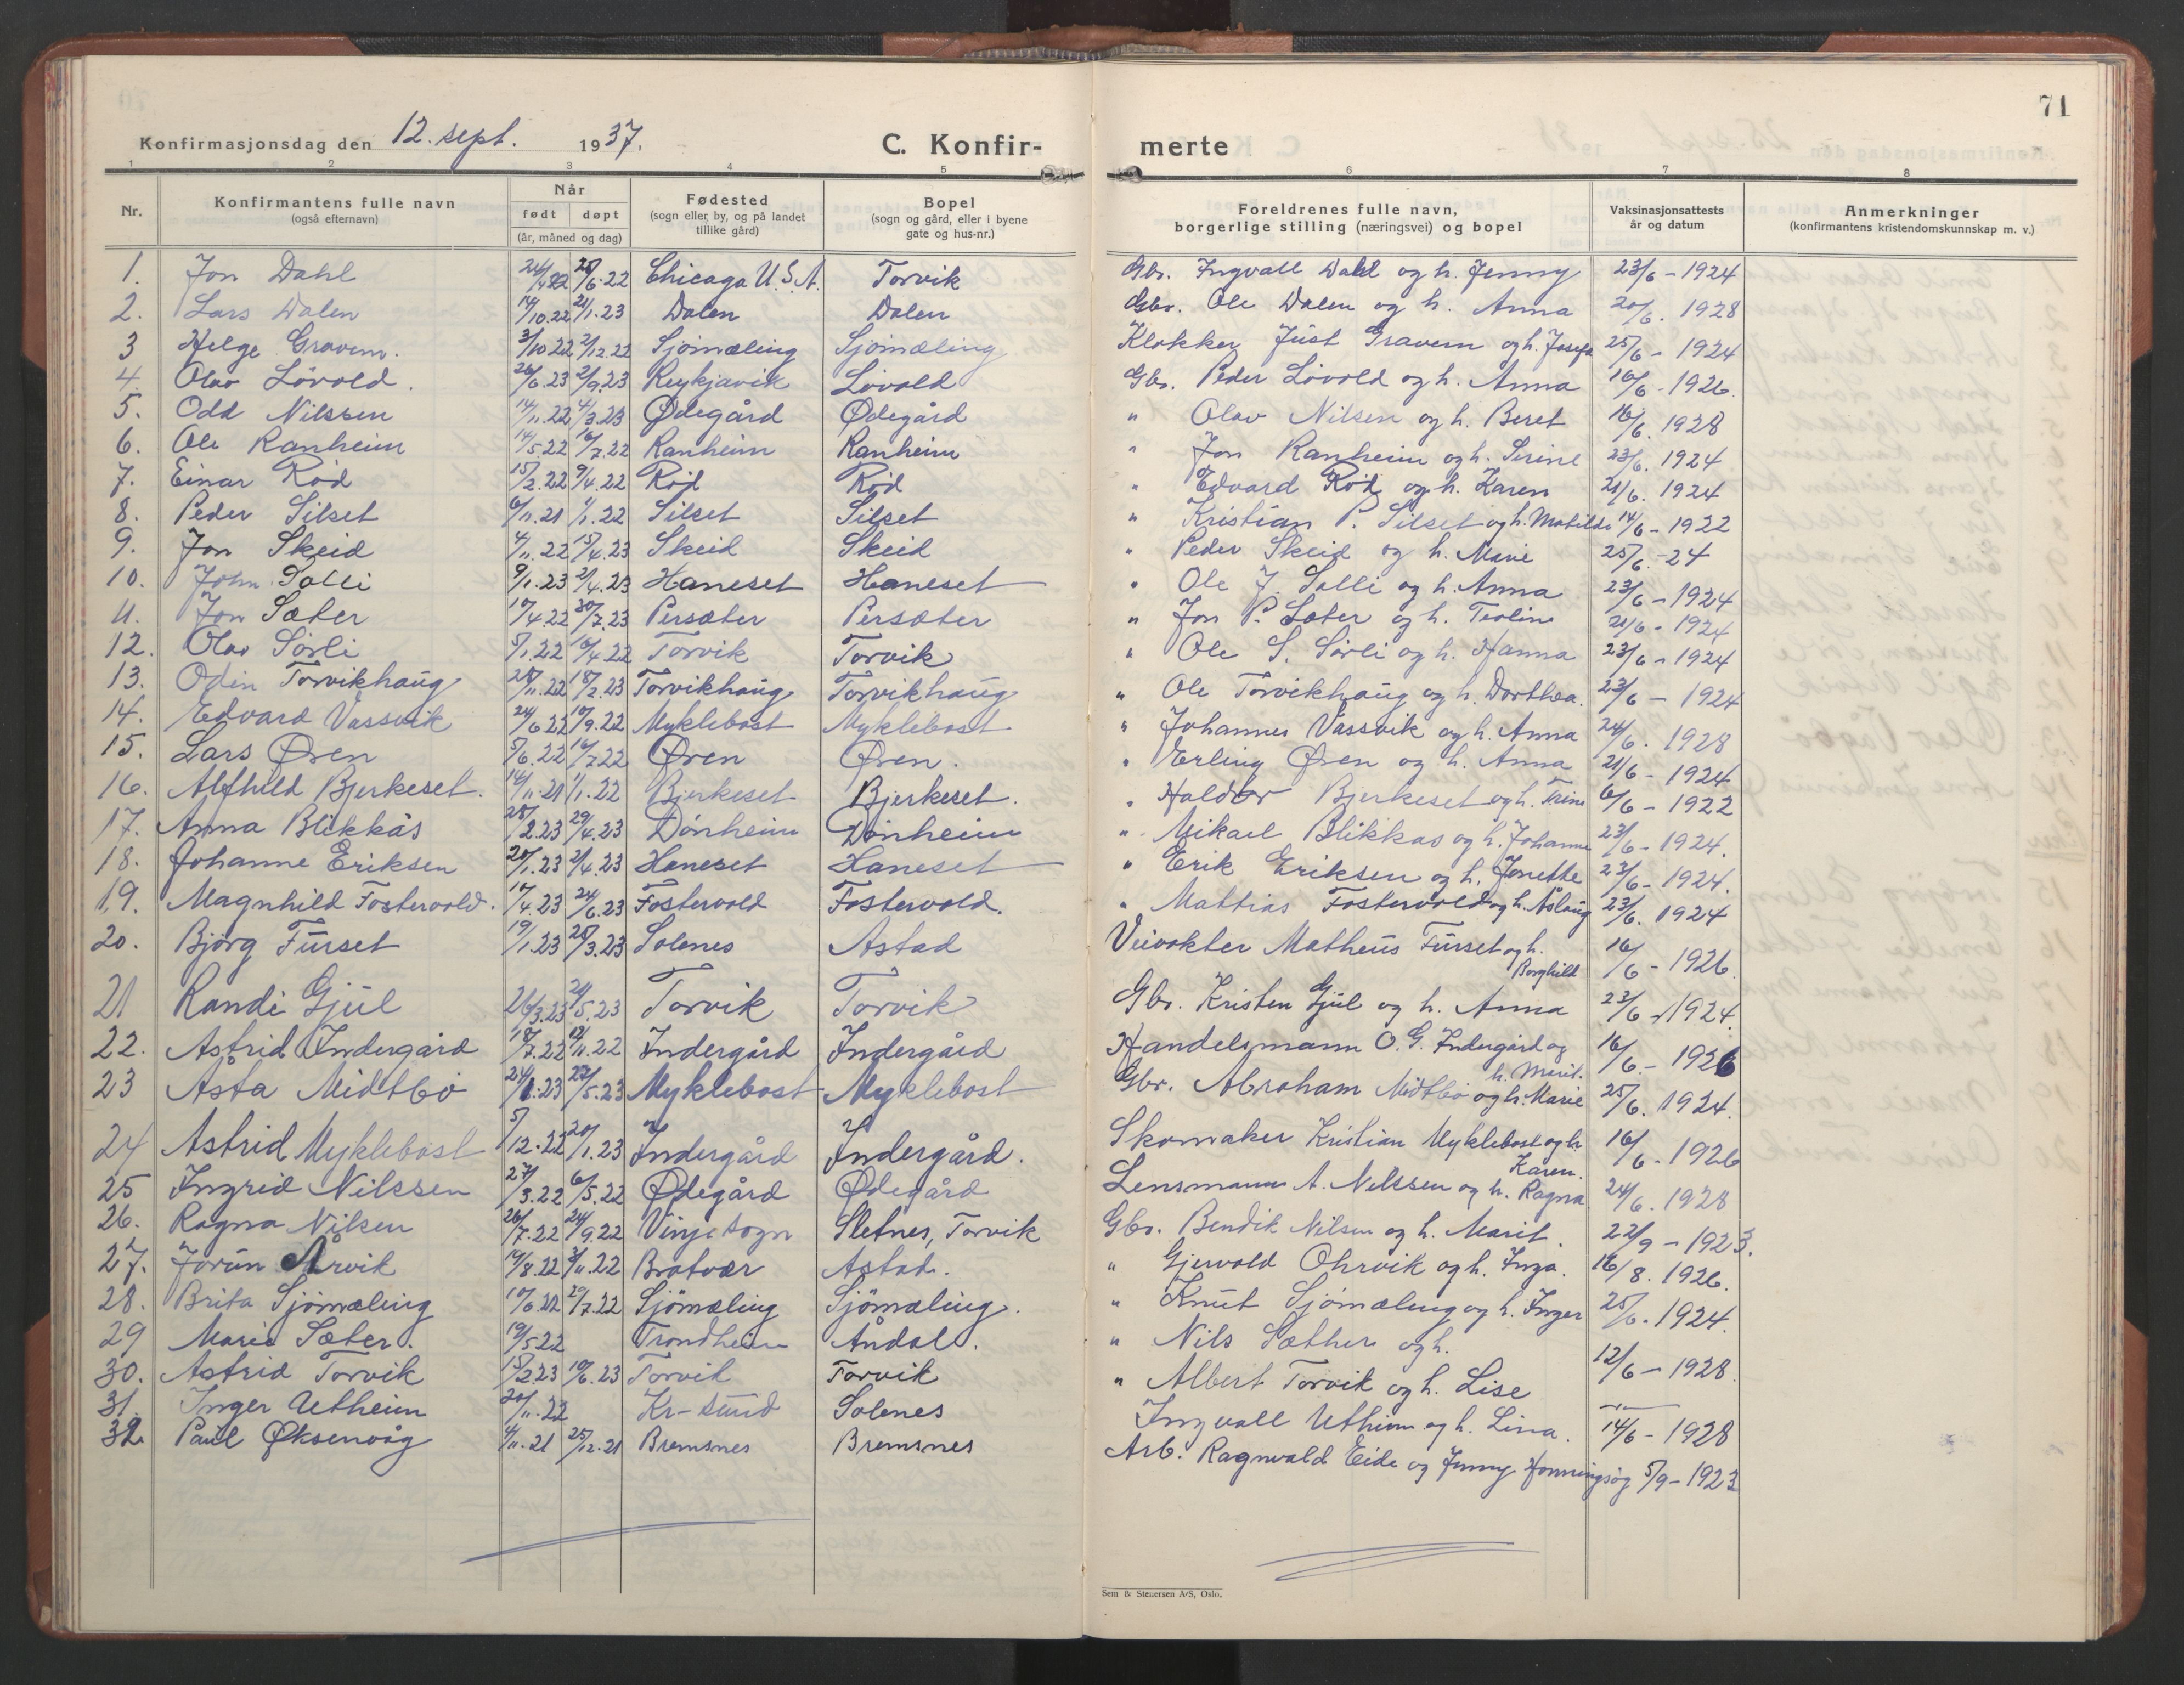 71
Konfirmasjonsdag den 12. sept. 1937. C. Konfir- merte
1 2 3 4 5 6 7 8
Nr. Konfirmantens fulle navn (også efternavn) Når født døpt (år, måned og dag) Fødested (sogn eller by, og på landet tillike gård) Bopel (sogn og gård, eller i byene gate og hus-nr.) Foreldrenes fulle navn, borgerlige stilling (næringsvei) og bopel Vaksinasjonsattests år og datum Anmerkninger (konfirmantens kristendomskunnskap m. v.)
1. Jon Dahl 24/4.22 25/6.22 Chicago U.S.A. Torvik Gbr. Ingvall Dahl og h. Jenny 23/6 - 1924
2. Lars Dalen 14/10.22 21/1.23 Dalen Dalen Gbr. Ole Dalen og h. Anna 20/6. 1928
3 Helge Gravem. 3/10 22 2/12.22 Sjömæling Sjömæling Klokker Just Gravem og h. Josefa 25/6 - 1924
4. Olav Lövold. 26/6.23 2/9.23 Reykjavik Lövold Gbr. Peder Lövold og h. Anna 16/6 - 1926.
5. Odd Nilssen 14/11.22 4/3.23 Ødegård Ødegård " Olav Nilsen og h. Beret 16/6. 1928
6. Ole Ranheim 14/5.22 16/7.22 Ranheim Ranheim " Jon Ranheim og h. Serine 23/6. 1924
7. Einar Röd 15/2.22 9/4.22 Röd Röd " Edvard Röd og h. Karen 21/6. 1924
8. Peder Silset 6/11.21 1/1.22 Silset Silset " Kristian P. Silset og h. Matilde 14/6 - 1922
9. Jon Skeid 4/11.22 15/4.23 Skeid Skeid " Peder Skeid og h. Marie 25/6.-24
10. John Solli 9/1.23 2/4.23 Haneset Haneset " Ole J. Solli og h. Anna 23/6 - 1924
11. Jon Sæter 17/4 22 30/7.23 Persæter Persæter " Jon P. Sæter og h. Teoline 21/6 - 1924
12. Olav Sörli 5/1.22 16/4.22 Torvik Torvik " Ole S. Sörli og h. Hanna 23/6 - 1924
13. Odin Torvikhaug 28/11.22 18/2.23 Torvikhaug Torvikhaug " Ole Torvikhaug og h. Dorthea. 23/6 - 1924
14. Edvard Vassvik 24/6 22 10/9.22 Myklebost Myklebost " Johannes Vassvik og h. Anna 24/6. 1928
15. Lars Øren 5/6.22 16/7 22 Øren Øren. " Erling Øren og h. Anna 21/6 - 1924
16. Alfhild Bjerkeset. 14/11.21 1/1.22 Bjerkeset Bjerkeset. " Haldor Bjerkeset og h. Trine 6/6 - 1922
17. Anna Blikkås 25/2.23 29/4.23 Dönheim Dönheim " Mikael Blikkås og h. Johanne 23/6 - 1924.
18. Johanne Eriksen 20/1.23 2/4.23 Haneset Haneset " Erik Eriksen og h. Jonette 23/6 - 1924.
19. Magnhild Fostervold. 17/4.23 24/6.23 Fostervold Fostervold. " Mattias Fostervold og h. Åslaug 23/6. 1924
20. Björg Furset 19/1.23 25/3.23 Solenes Astad Veivokter Matheus Furset og h. Borghild 16/6 - 1926.
21 Randi Gjul 26/3.23 20/5.23 Torvik Torvik Gbr. Kristen Gjul og h. Anna 23/6 - 1924.
22. Astrid Indergård 18/7.22 12/11.22 Indergård Indergård Handelsmann O.G. Indergård og h. Marit. 16/6. - 1926
23 Åsta Midtbö 24/1.23 27/5.23 Myklebost Myklebost Gbr. Abraham Midtbö og h. Marie 25/6. 1924.
24 Astrid Myklebost 5/12.22 20/1.23 Indergård Indergård. Skomaker Kristian Myklebost og h. Karen. 16/6 - 1926
25 Ingrid Nilssen 27/3.22 6/5.22 Ødegård Ødegård Lensmann A. Nilssen og h. Ragna 24/6. 1928
26. Ragna Nilsen 26/7.22 24/9.22 Vinje sogn Sletnes, Torvik Gbr. Bendik Nilsen og h. Marit. 22/9 - 1923.
27. Jorun Årvik 19/8.22 3/11.22 Bratvær Astad. " Gjervold Ohrvik og h. Inga. 16/8. 1926.
28. Brita Sjömæling 10/6.22 29/7.22 Sjömæling Sjömæling. " Knut Sjömæling og h. Inger 25/6. 1924.
29 Marie Sæter. 19/5.22 Trondheim Åndal. " Nils Sæther og h.
30. Astrid Torvik 15/2.23 10/6.23 Torvik Torvik " Albert Torvik og h. Lise 12/6 - 1928
31. Inger Utheim 20/11.22 Kr-sund Solenes Ingvall Utheim og h. Lina. 14/6 - 1928
32 Paul Øksenvåg 4/11.21 25/12.21 Bremsnes Bremsnes Arb. Ragnvald Eide og Jenny Honningsög 5/9 - 1923
Sem & Stenersen A/S, Oslo.